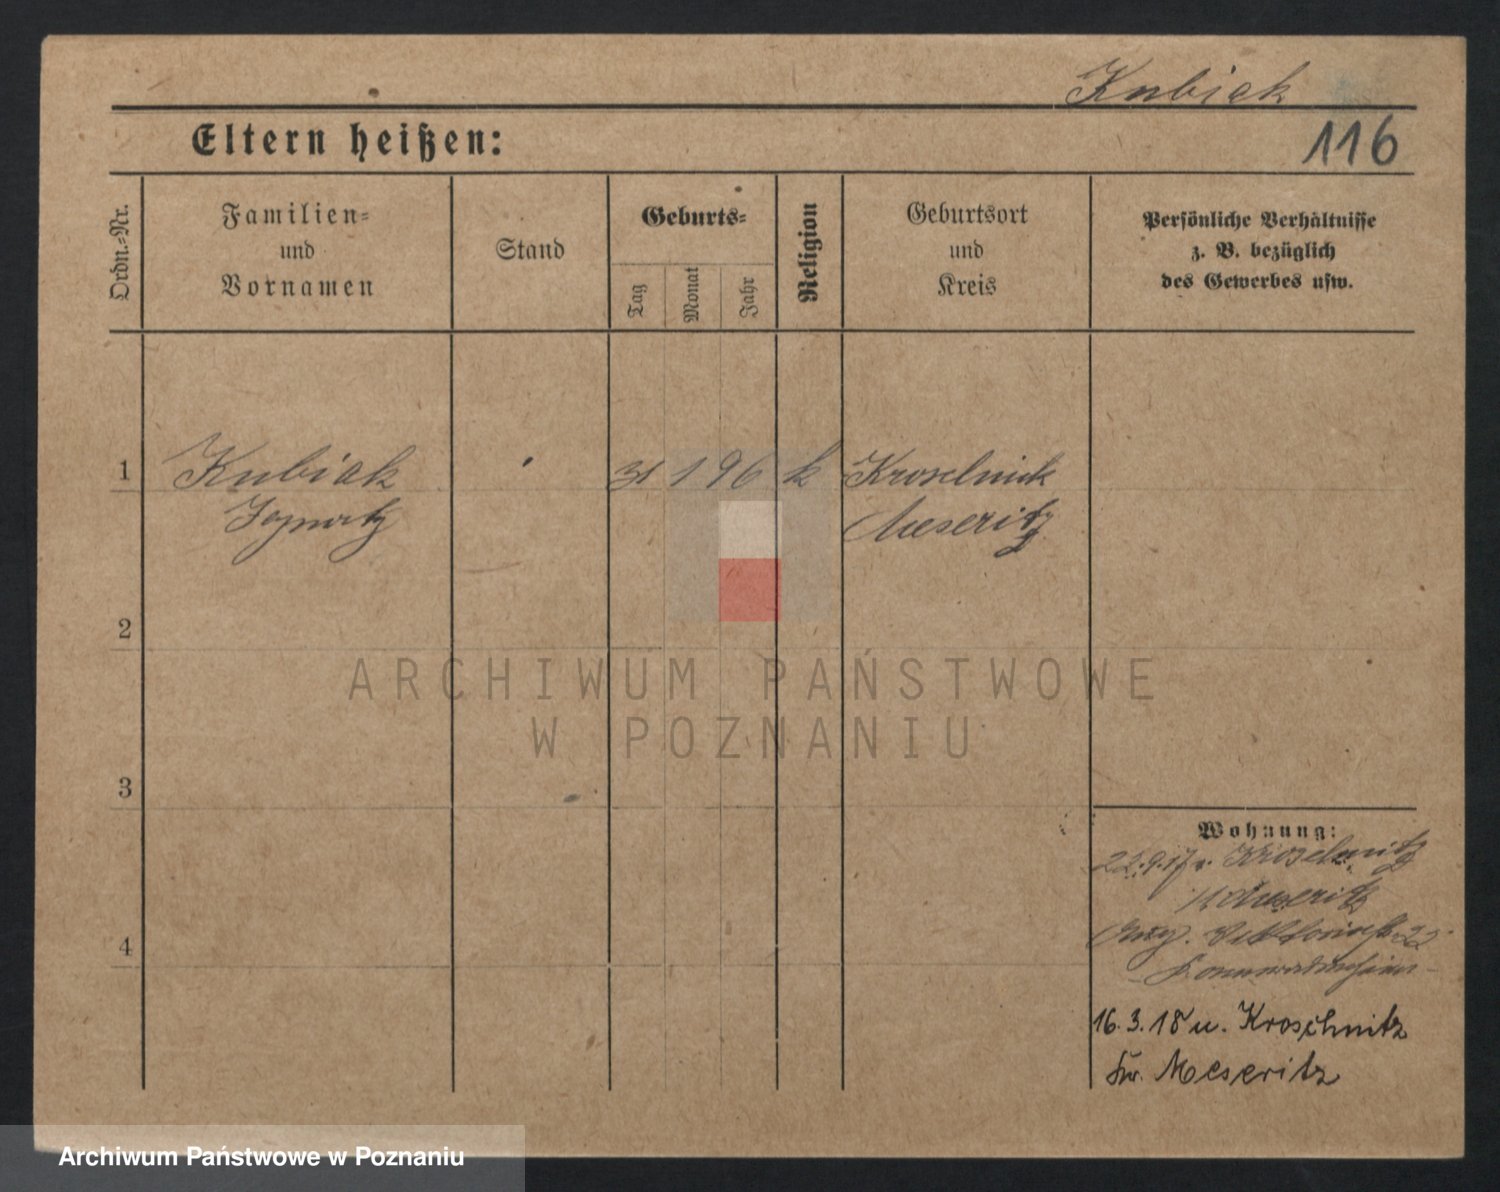 Kubiak
116
Eltern heißen:
Ordn.-Nr.
Familien-
und
Vornamen
Stand
Geburts-
Tag
Monat
Jahr
Religion
Geburtsort
und
Kreis
Persönliche Verhältnisse
z. B. bezüglich
des Gewerbes usw.
1
Kubiak
31 1 96 k
Ignatz
Meseritz
2
3
4
ARCHIWUM PAŃSTWOWE
W POZNANIU
Wohnung:
22.9.17 v.
Meseritz
22
16.3.18 u. Kroschnitz
Kr. Meseritz
Archiwum Państwowe w Poznaniu